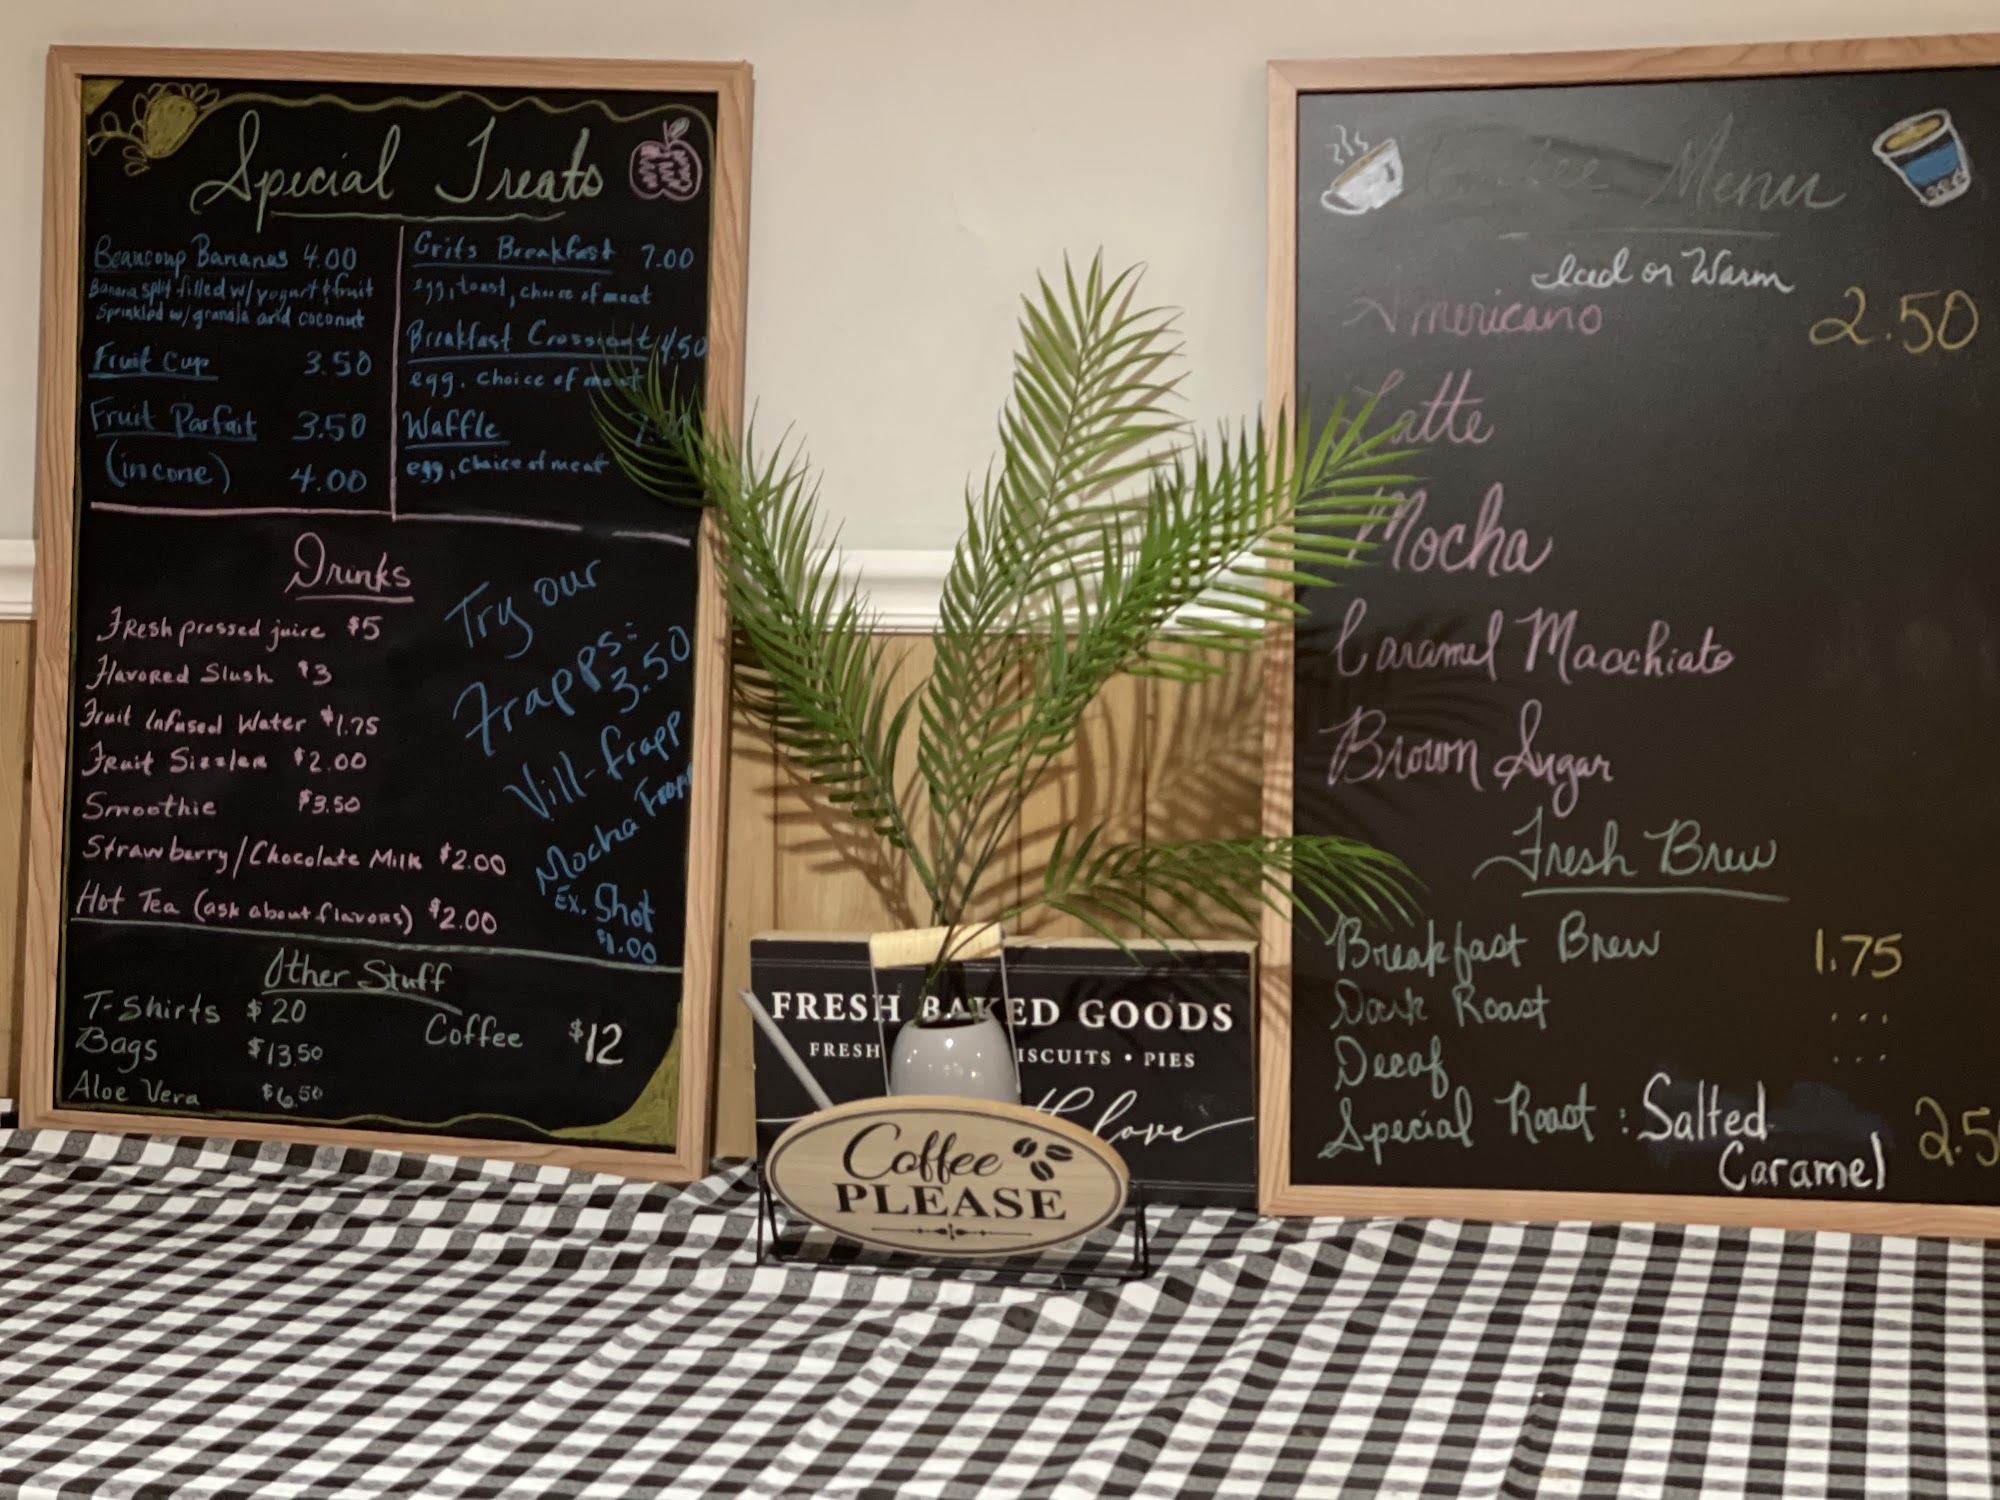 Special Treats
Beaucoup Bananas 4.00
Banana split filled w/yogurt & fruit
Sprinkled w/granola and coconut
Fruit Cup 3.50
Fruit Parfait 3.50
(in cone) 4.00
Grits Breakfast 7.00
egg, toast, choice of meat
Breakfast Crossiant 4.50
egg, choice of meat
Waffle
egg, choice of meat
Drinks
Fresh pressed juice $5
Flavored Slush $3
Fruit Infused Water $1.75
Fruit Sizzler $2.00
Smoothie $3.50
Strawberry/Chocolate Milk $2.00
Hot Tea (ask about flavors) $2.00
Try our
Frapps:
3.50
Vill-frapp
Mocha Frapp
Ex. Shot
$1.00
Other Stuff
T-Shirts $20
Bags $13.50
Aloe Vera $6.50
Coffee $12
FRESH BAKED GOODS
FRESH ISCUITS • PIES
love
Coffee
PLEASE
Coffee Menu
Iced or Warm
Americano 2.50
Latte
Mocha
Caramel Macchiato
Brown Sugar
Fresh Brew
Breakfast Brew 1.75
Dark Roast ...
Decaf ...
Special Roast : Salted
Caramel 2.5